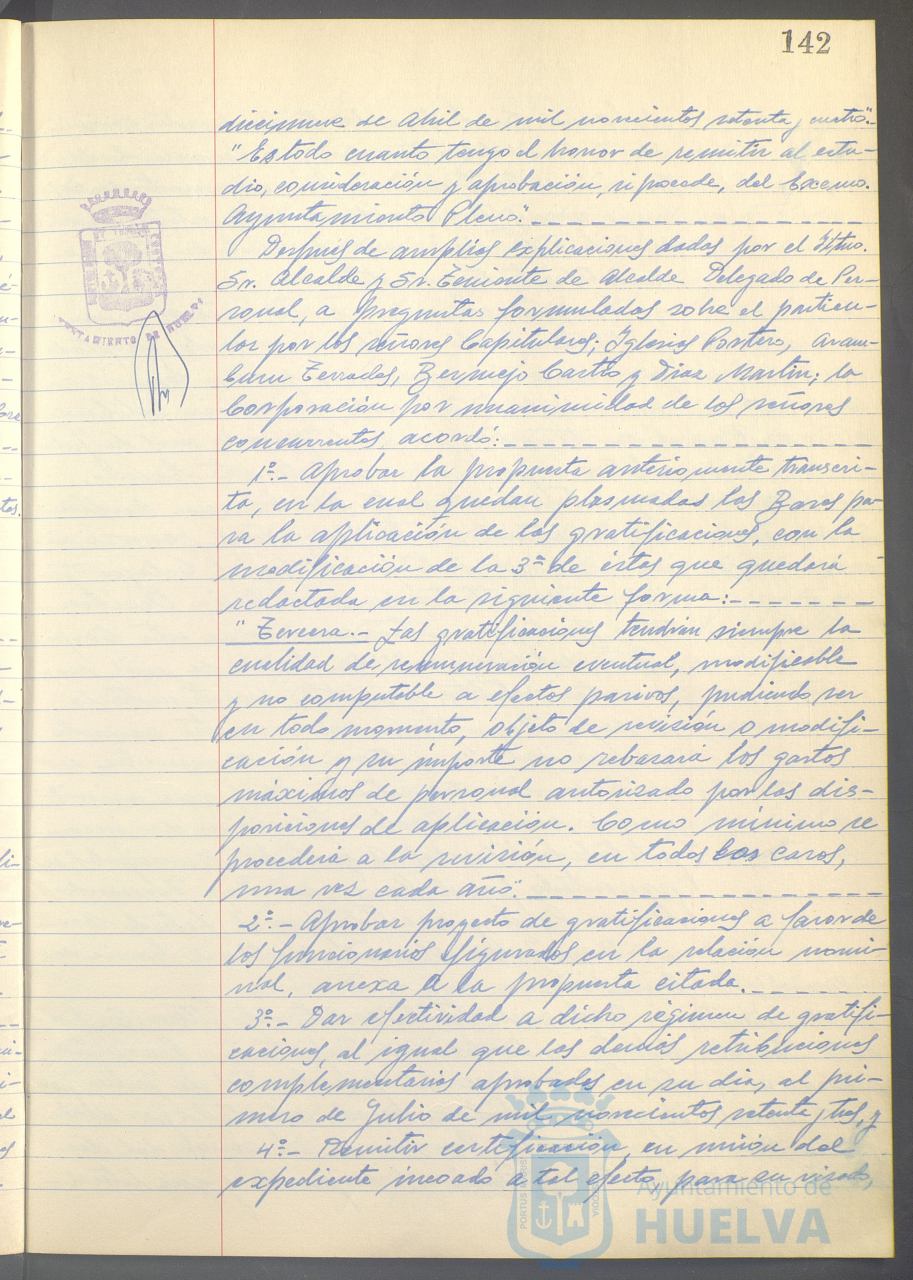 142
diecinueve de Abril de mil novecientos setenta y cuatro".-
"Es todo cuanto tengo el honor de remitir al estu-
dio, consideración y aprobación, si procede, del Excmo.
Ayuntamiento Pleno".
Después de amplias explicaciones dadas por el Iltmo.
Sr. Alcalde y Sr. Teniente de Alcalde Delegado de Per-
sonal, a preguntas formuladas sobre el particu-
lar por los señores Capitulares; Iglesias Portero, Aram-
buru Terrades, Bermejo Castro y Díaz Martín; la
Corporación por unanimidad de los señores
concurrentes acordó:
1º.- Aprobar la propuesta anteriormente transcri-
ta, en la cual quedan plasmadas las Bases pa-
ra la aplicación de las gratificaciones, con la
modificación de la 3ª de éstas que quedará
redactada en la siguiente forma:
"Tercera.- Las gratificaciones tendrán siempre la
cualidad de remuneración eventual, modificable
y no computable a efectos pasivos, pudiendo ser
en todo momento, objeto de revisión o modifi-
cación y su importe no rebasará los gastos
máximos de personal autorizado por las dis-
posiciones de aplicación. Como mínimo se
procederá a la revisión, en todos los casos,
una vez cada año".
2º.- Aprobar proyecto de gratificaciones a favor de
los funcionarios figurados en la relación nomi-
nal, anexa a la propuesta citada.
3º.- Dar efectividad a dicho régimen de gratifi-
caciones, al igual que las demás retribuciones
complementarias aprobadas en su día, al pri-
mero de Julio de mil novecientos setenta y tres, y
4º.- Remitir certificación, en unión del
expediente incoado a tal efecto, para su visado,
AYUNTAMIENTO DE HUELVA
Ayuntamiento de
HUELVA